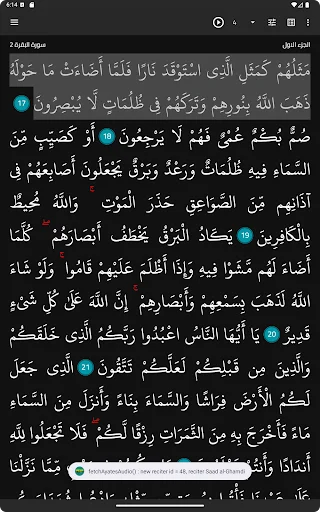 6:14
4
الجزء الاول
سورة البقرة 2
مَثَلُهُمْ كَمَثَلِ الَّذِى اسْتَوْقَدَ نَارًا فَلَمَّا أَضَاءَتْ مَا حَوْلَهُ
ذَهَبَ اللَّهُ بِنُورِهِمْ وَتَرَكَهُمْ فِى ظُلُمَاتٍ لَّا يُبْصِرُونَ
17
صُمٌّ بُكْمٌ عُمْىٌ فَهُمْ لَا يَرْجِعُونَ 18 أَوْ كَصَيِّبٍ مِّنَ
السَّمَاءِ فِيهِ ظُلُمَاتٌ وَرَعْدٌ وَبَرْقٌ يَجْعَلُونَ أَصَابِعَهُمْ فِى
آذَانِهِم مِّنَ الصَّوَاعِقِ حَذَرَ الْمَوْتِ ۚ وَاللَّهُ مُحِيطٌ
بِالْكَافِرِينَ 19 يَكَادُ الْبَرْقُ يَخْطَفُ أَبْصَارَهُمْ ۖ كُلَّمَا
أَضَاءَ لَهُم مَّشَوْا فِيهِ وَإِذَا أَظْلَمَ عَلَيْهِمْ قَامُوا ۚ وَلَوْ شَاءَ
اللَّهُ لَذَهَبَ بِسَمْعِهِمْ وَأَبْصَارِهِمْ ۚ إِنَّ اللَّهَ عَلَىٰ كُلِّ شَىْءٍ
قَدِيرٌ 20 يَا أَيُّهَا النَّاسُ اعْبُدُوا رَبَّكُمُ الَّذِى خَلَقَكُمْ
وَالَّذِينَ مِن قَبْلِكُمْ لَعَلَّكُمْ تَتَّقُونَ 21 الَّذِى جَعَلَ
لَكُمُ الْأَرْضَ فِرَاشًا وَالسَّمَاءَ بِنَاءً وَأَنزَلَ مِنَ السَّمَاءِ
مَاءً فَأَخْرَجَ بِهِ مِنَ الثَّمَرَاتِ رِزْقًا لَّكُمْ ۖ فَلَا تَجْعَلُوا لِلَّهِ
أَندَادًا وَأَنتُمْ
fetchAyatesAudio() : new reciter id = 48, reciter Saad al-Ghamdi